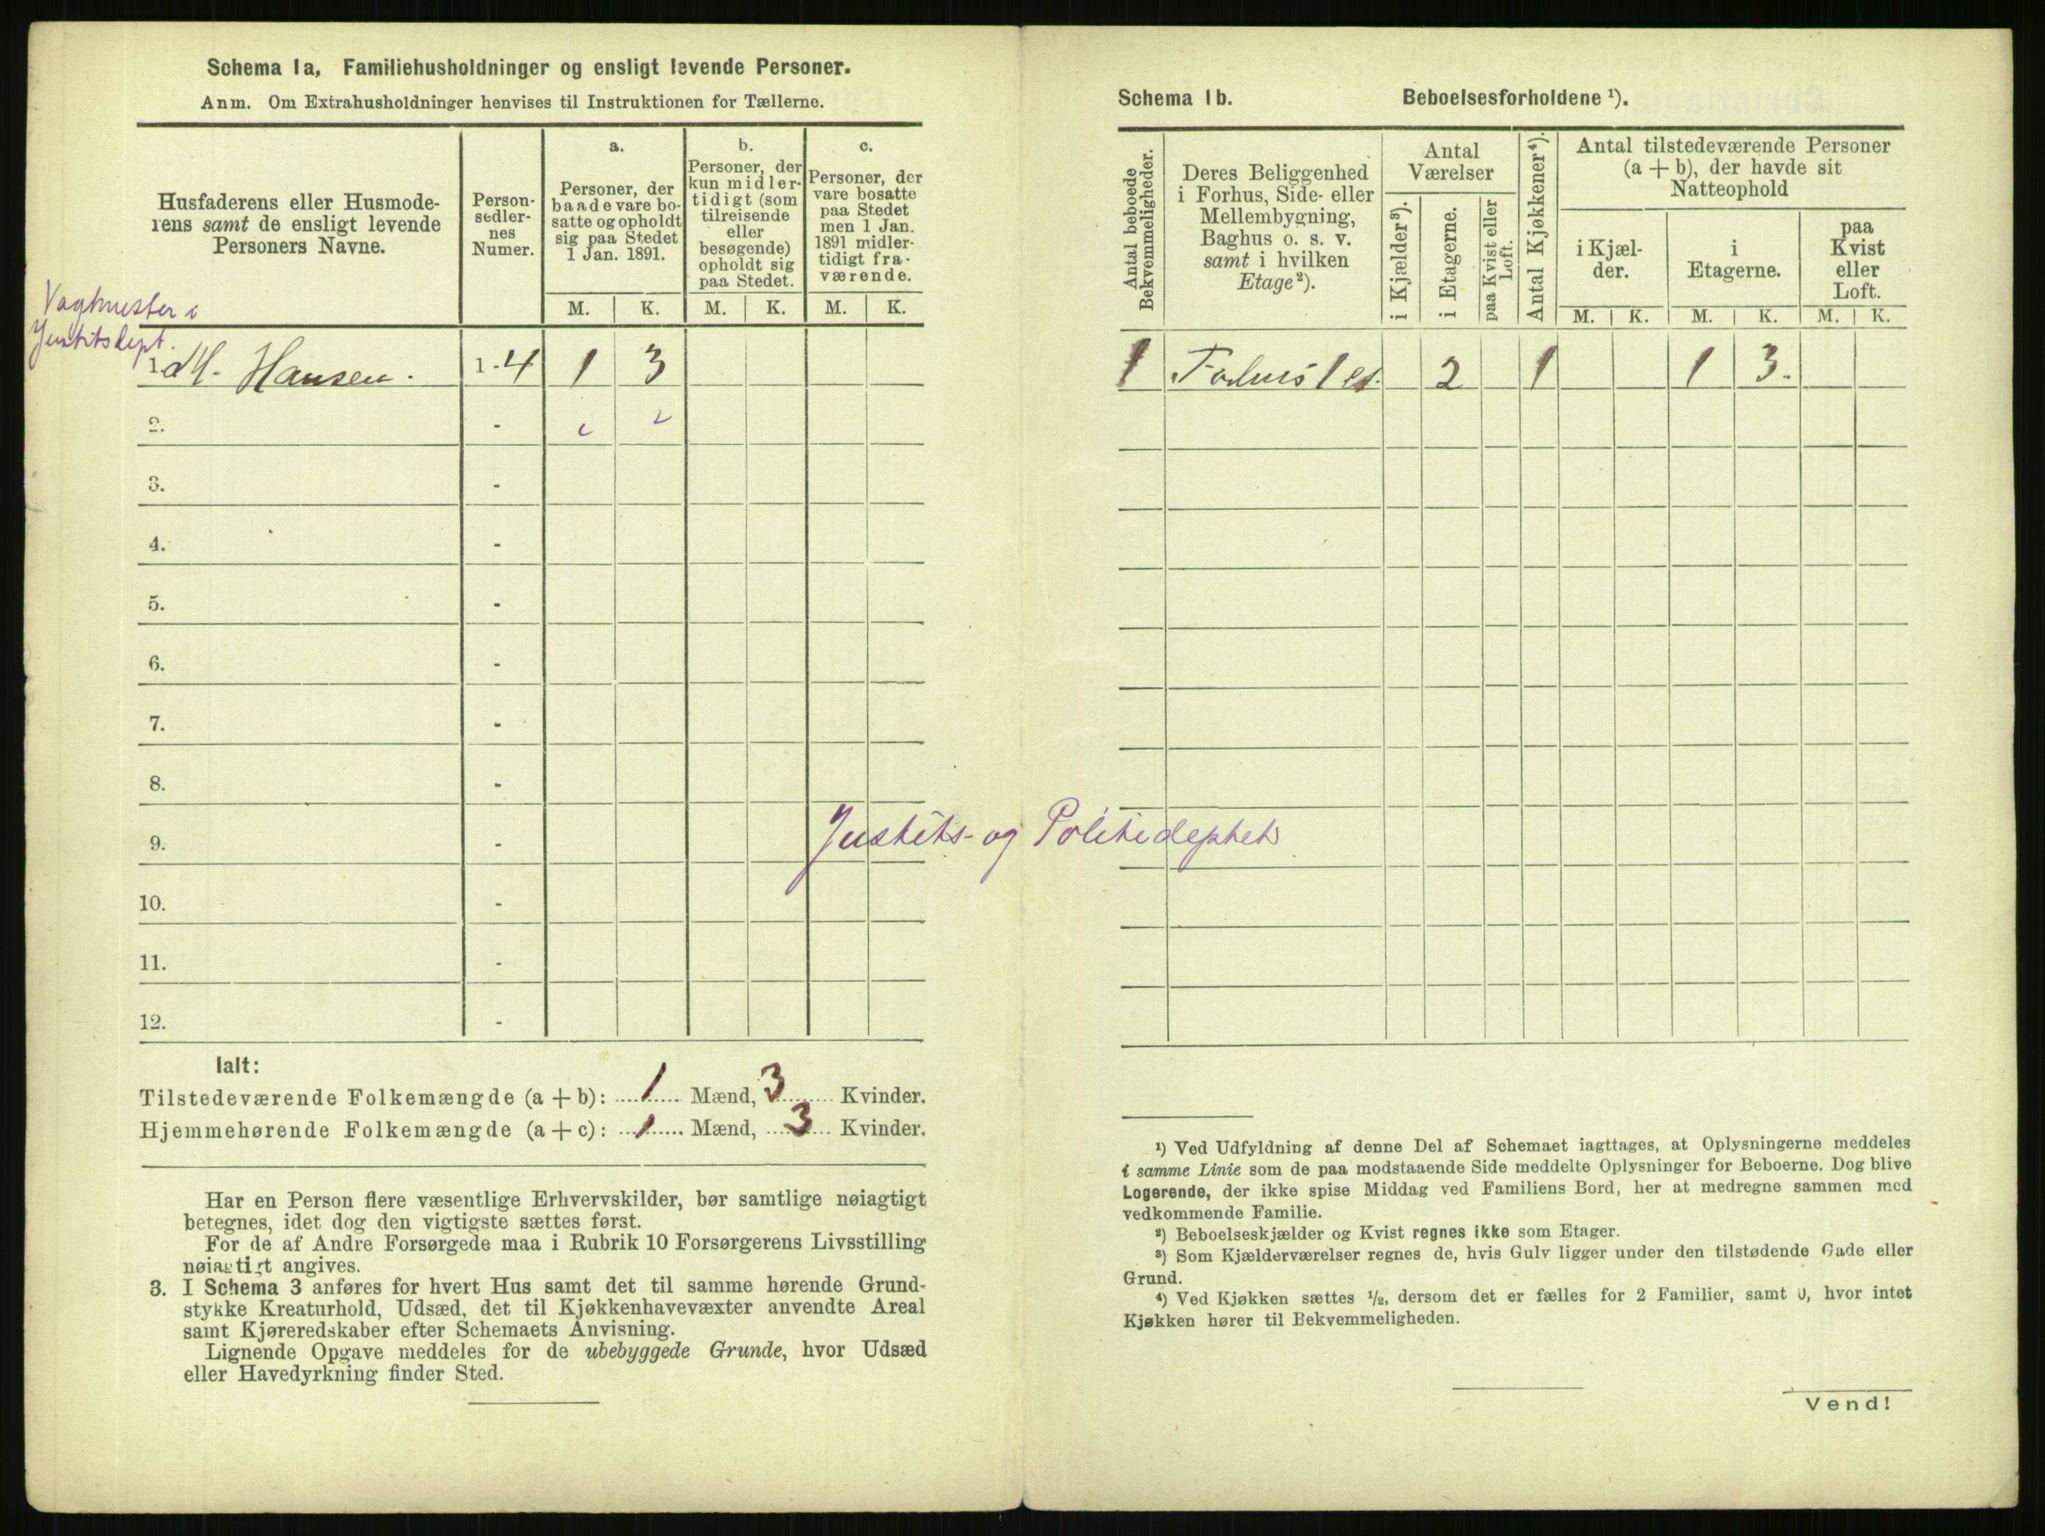 Schema 1a, Familiehusholdninger og ensligt levende Personer.
Anm. Om Extrahusholdninger henvises til Instruktionen for Tællerne.
Husfaderens eller Husmode-
rens samt de ensligt levende
Personers Navne.
Person-
sedler-
nes
Numer.
a.
Personer, der
baade vare bo-
satte og opholdt
sig paa Stedet
1 Jan. 1891.
b.
Personer, der
kun midler-
tidigt (som
tilreisende
eller
besøgende)
opholdt sig
paa Stedet.
c.
Personer, der
vare bosatte
paa Stedet
men 1 Jan.
1891 midler-
tidigt fra-
værende.
M. K. M. K. M. K.
Vagtmester i
Justitsdept.
1. M. Hansen. 1-4 1 3
2. -
3. -
4. -
5. -
6. -
7. -
8. -
9. -
10. -
11. -
12. -
Justits- og Politideptets
Ialt:
Tilstedeværende Folkemængde (a + b): 1 Mænd, 3 Kvinder.
Hjemmehørende Folkemængde (a + c): 1 Mænd, 3 Kvinder.
Har en Person flere væsentlige Erhvervskilder, bør samtlige nøiagtigt
betegnes, idet dog den vigtigste sættes først.
For de af Andre Forsørgede maa i Rubrik 10 Forsørgerens Livsstilling
nøiagtigt angives.
3. I Schema 3 anføres for hvert Hus samt det til samme hørende Grund-
stykke Kreaturhold, Udsæd, det til Kjøkkenhavevæxter anvendte Areal
samt Kjøreredskaber efter Schemaets Anvisning.
Lignende Opgave meddeles for de ubebyggede Grunde, hvor Udsæd
eller Havedyrkning finder Sted.
Schema 1b. Beboelsesforholdene ¹).
Antal beboede
Bekvemmeligheder.
Deres Beliggenhed
i Forhus, Side- eller
Mellembygning,
Baghus o. s. v.
samt i hvilken
Etage²).
Antal
Værelser
i Kjælder³).
i Etagerne.
paa Kvist eller
Loft.
Antal Kjøkkener⁴).
Antal tilstedeværende Personer
(a + b), der havde sit
Natteophold
i Kjæl-
der.
i
Etagerne.
paa
Kvist
eller
Loft.
M. K. M. K. M. K.
1 Forhus 1 et. 2 1 1 3.
¹) Ved Udfyldning af denne Del af Schemaet iagttages, at Oplysningerne meddeles
i samme Linie som de paa modstaaende Side meddelte Oplysninger for Beboerne. Dog blive
Logerende, der ikke spise Middag ved Familiens Bord, her at medregne sammen med
vedkommende Familie.
²) Beboelseskjælder og Kvist regnes ikke som Etager.
³) Som Kjælderværelser regnes de, hvis Gulv ligger under den tilstødende Gade eller
Grund.
⁴) Ved Kjøkken sættes ½, dersom det er fælles for 2 Familier, samt 0, hvor intet
Kjøkken hører til Bekvemmeligheden.
Vend!